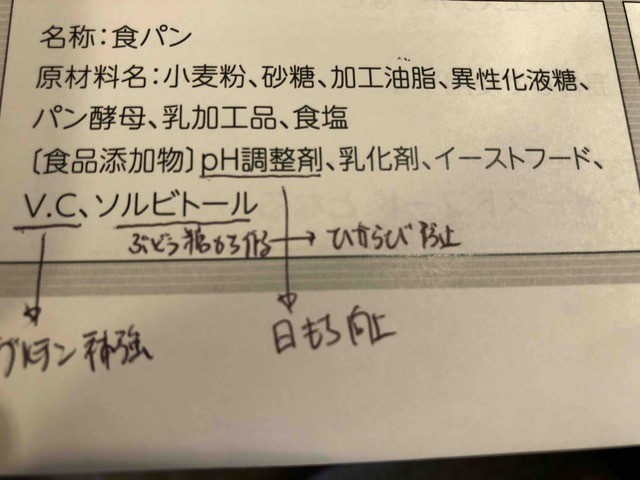 名称:食パン
原材料名:小麦粉、砂糖、加工油脂、異性化液糖、
パン酵母、乳加工品、食塩
〔食品添加物〕pH調整剤、乳化剤、イーストフード、
V.C、ソルビトール
ぶどう糖から作る→ひからび防止
グルテン補強
日もち向上